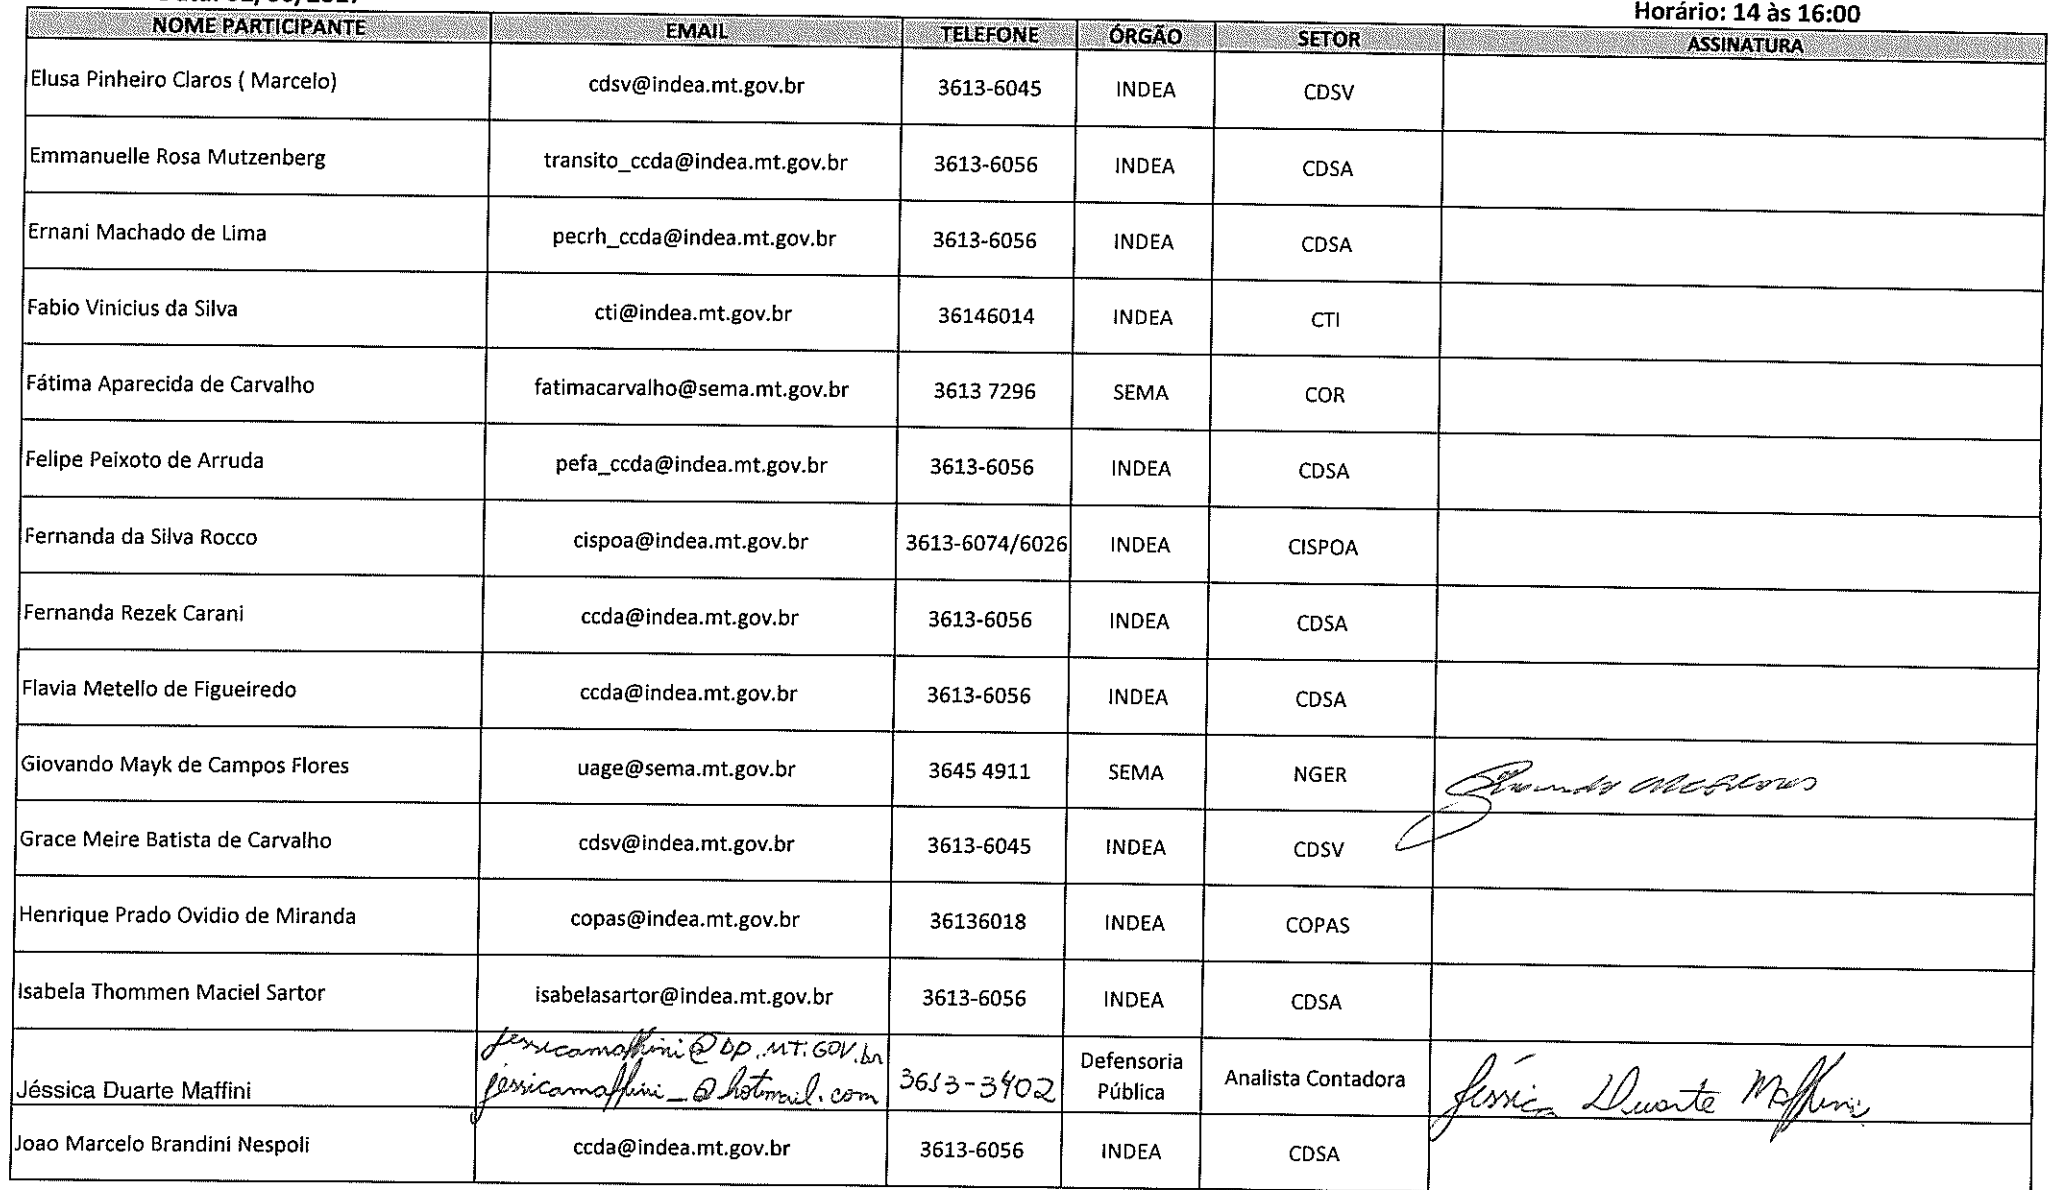 Horário: 14 às 16:00
NOME PARTICIPANTE EMAIL TELEFONE ÓRGÃO SETOR ASSINATURA
Elusa Pinheiro Claros ( Marcelo) cdsv@indea.mt.gov.br 3613-6045 INDEA CDSV
Emmanuelle Rosa Mutzenberg transito_ccda@indea.mt.gov.br 3613-6056 INDEA CDSA
Ernani Machado de Lima pecrh_ccda@indea.mt.gov.br 3613-6056 INDEA CDSA
Fabio Vinicius da Silva cti@indea.mt.gov.br 36146014 INDEA CTI
Fátima Aparecida de Carvalho fatimacarvalho@sema.mt.gov.br 3613 7296 SEMA COR
Felipe Peixoto de Arruda pefa_ccda@indea.mt.gov.br 3613-6056 INDEA CDSA
Fernanda da Silva Rocco cispoa@indea.mt.gov.br 3613-6074/6026 INDEA CISPOA
Fernanda Rezek Carani ccda@indea.mt.gov.br 3613-6056 INDEA CDSA
Flavia Metello de Figueiredo ccda@indea.mt.gov.br 3613-6056 INDEA CDSA
Giovando Mayk de Campos Flores uage@sema.mt.gov.br 3645 4911 SEMA NGER
Grace Meire Batista de Carvalho cdsv@indea.mt.gov.br 3613-6045 INDEA CDSV
Henrique Prado Ovidio de Miranda copas@indea.mt.gov.br 36136018 INDEA COPAS
Isabela Thommen Maciel Sartor isabelasartor@indea.mt.gov.br 3613-6056 INDEA CDSA
jessicamaffini@DP.MT.GOV.br
Jéssica Duarte Maffini jessicamaffini_@hotmail.com 3613-3402 Defensoria Pública Analista Contadora Jéssica Duarte Maffini
Joao Marcelo Brandini Nespoli ccda@indea.mt.gov.br 3613-6056 INDEA CDSA